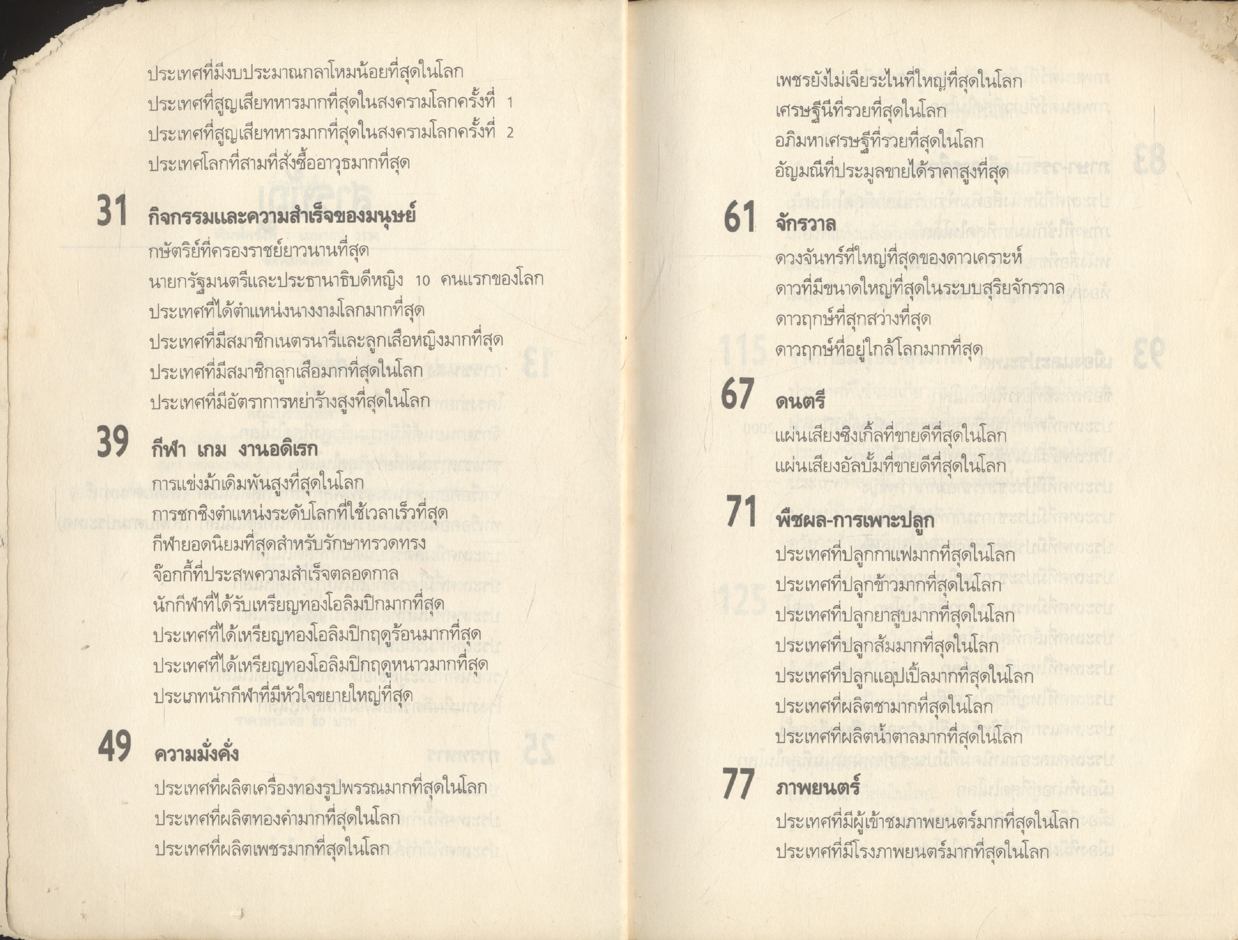 ประเทศที่มีงบประมาณกลาโหมน้อยที่สุดในโลก
ประเทศที่สูญเสียทหารมากที่สุดในสงครามโลกครั้งที่ 1
ประเทศที่สูญเสียทหารมากที่สุดในสงครามโลกครั้งที่ 2
ประเทศโลกที่สามที่สั่งซื้ออาวุธมากที่สุด
31 กิจกรรมและความสำเร็จของมนุษย์
กษัตริย์ที่ครองราชย์ยาวนานที่สุด
นายกรัฐมนตรีและประธานาธิบดีหญิง 10 คนแรกของโลก
ประเทศที่ได้ตำแหน่งนางงามโลกมากที่สุด
ประเทศที่มีสมาชิกเนตรนารีและลูกเสือหญิงมากที่สุด
ประเทศที่มีสมาชิกลูกเสือมากที่สุดในโลก
ประเทศที่มีอัตราการหย่าร้างสูงที่สุดในโลก
39 กีฬา เกม งานอดิเรก
การแข่งม้าเดิมพันสูงที่สุดในโลก
การชกชิงตำแหน่งระดับโลกที่ใช้เวลาเร็วที่สุด
กีฬายอดนิยมที่สุดสำหรับรักษาทรวดทรง
จ๊อกกี้ที่ประสพความสำเร็จตลอดกาล
นักกีฬาที่ได้รับเหรียญทองโอลิมปิกมากที่สุด
ประเทศที่ได้เหรียญทองโอลิมปิกฤดูร้อนมากที่สุด
ประเทศที่ได้เหรียญทองโอลิมปิกฤดูหนาวมากที่สุด
ประเภทนักกีฬาที่มีหัวใจขยายใหญ่ที่สุด
49 ความมั่งคั่ง
ประเทศที่ผลิตเครื่องทองรูปพรรณมากที่สุดในโลก
ประเทศที่ผลิตทองคำมากที่สุดในโลก
ประเทศที่ผลิตเพชรมากที่สุดในโลก
เพชรยังไม่เจียระไนที่ใหญ่ที่สุดในโลก
เศรษฐีนีที่รวยที่สุดในโลก
อภิมหาเศรษฐีที่รวยที่สุดในโลก
อัญมณีที่ประมูลขายได้ราคาสูงที่สุด
61 จักรวาล
ดวงจันทร์ที่ใหญ่ที่สุดของดาวเคราะห์
ดาวที่มีขนาดใหญ่ที่สุดในระบบสุริยจักรวาล
ดาวฤกษ์ที่สุกสว่างที่สุด
ดาวฤกษ์ที่อยู่ใกล้โลกมากที่สุด
67 ดนตรี
แผ่นเสียงซิงเกิ้ลที่ขายดีที่สุดในโลก
แผ่นเสียงอัลบั้มที่ขายดีที่สุดในโลก
71 พืชผล-การเพาะปลูก
ประเทศที่ปลูกกาแฟมากที่สุดในโลก
ประเทศที่ปลูกข้าวมากที่สุดในโลก
ประเทศที่ปลูกยาสูบมากที่สุดในโลก
ประเทศที่ปลูกส้มมากที่สุดในโลก
ประเทศที่ปลูกแอปเปิ้ลมากที่สุดในโลก
ประเทศที่ผลิตชามากที่สุดในโลก
ประเทศที่ผลิตน้ำตาลมากที่สุดในโลก
77 ภาพยนตร์
ประเทศที่มีผู้เข้าชมภาพยนตร์มากที่สุดในโลก
ประเทศที่มีโรงภาพยนตร์มากที่สุดในโลก